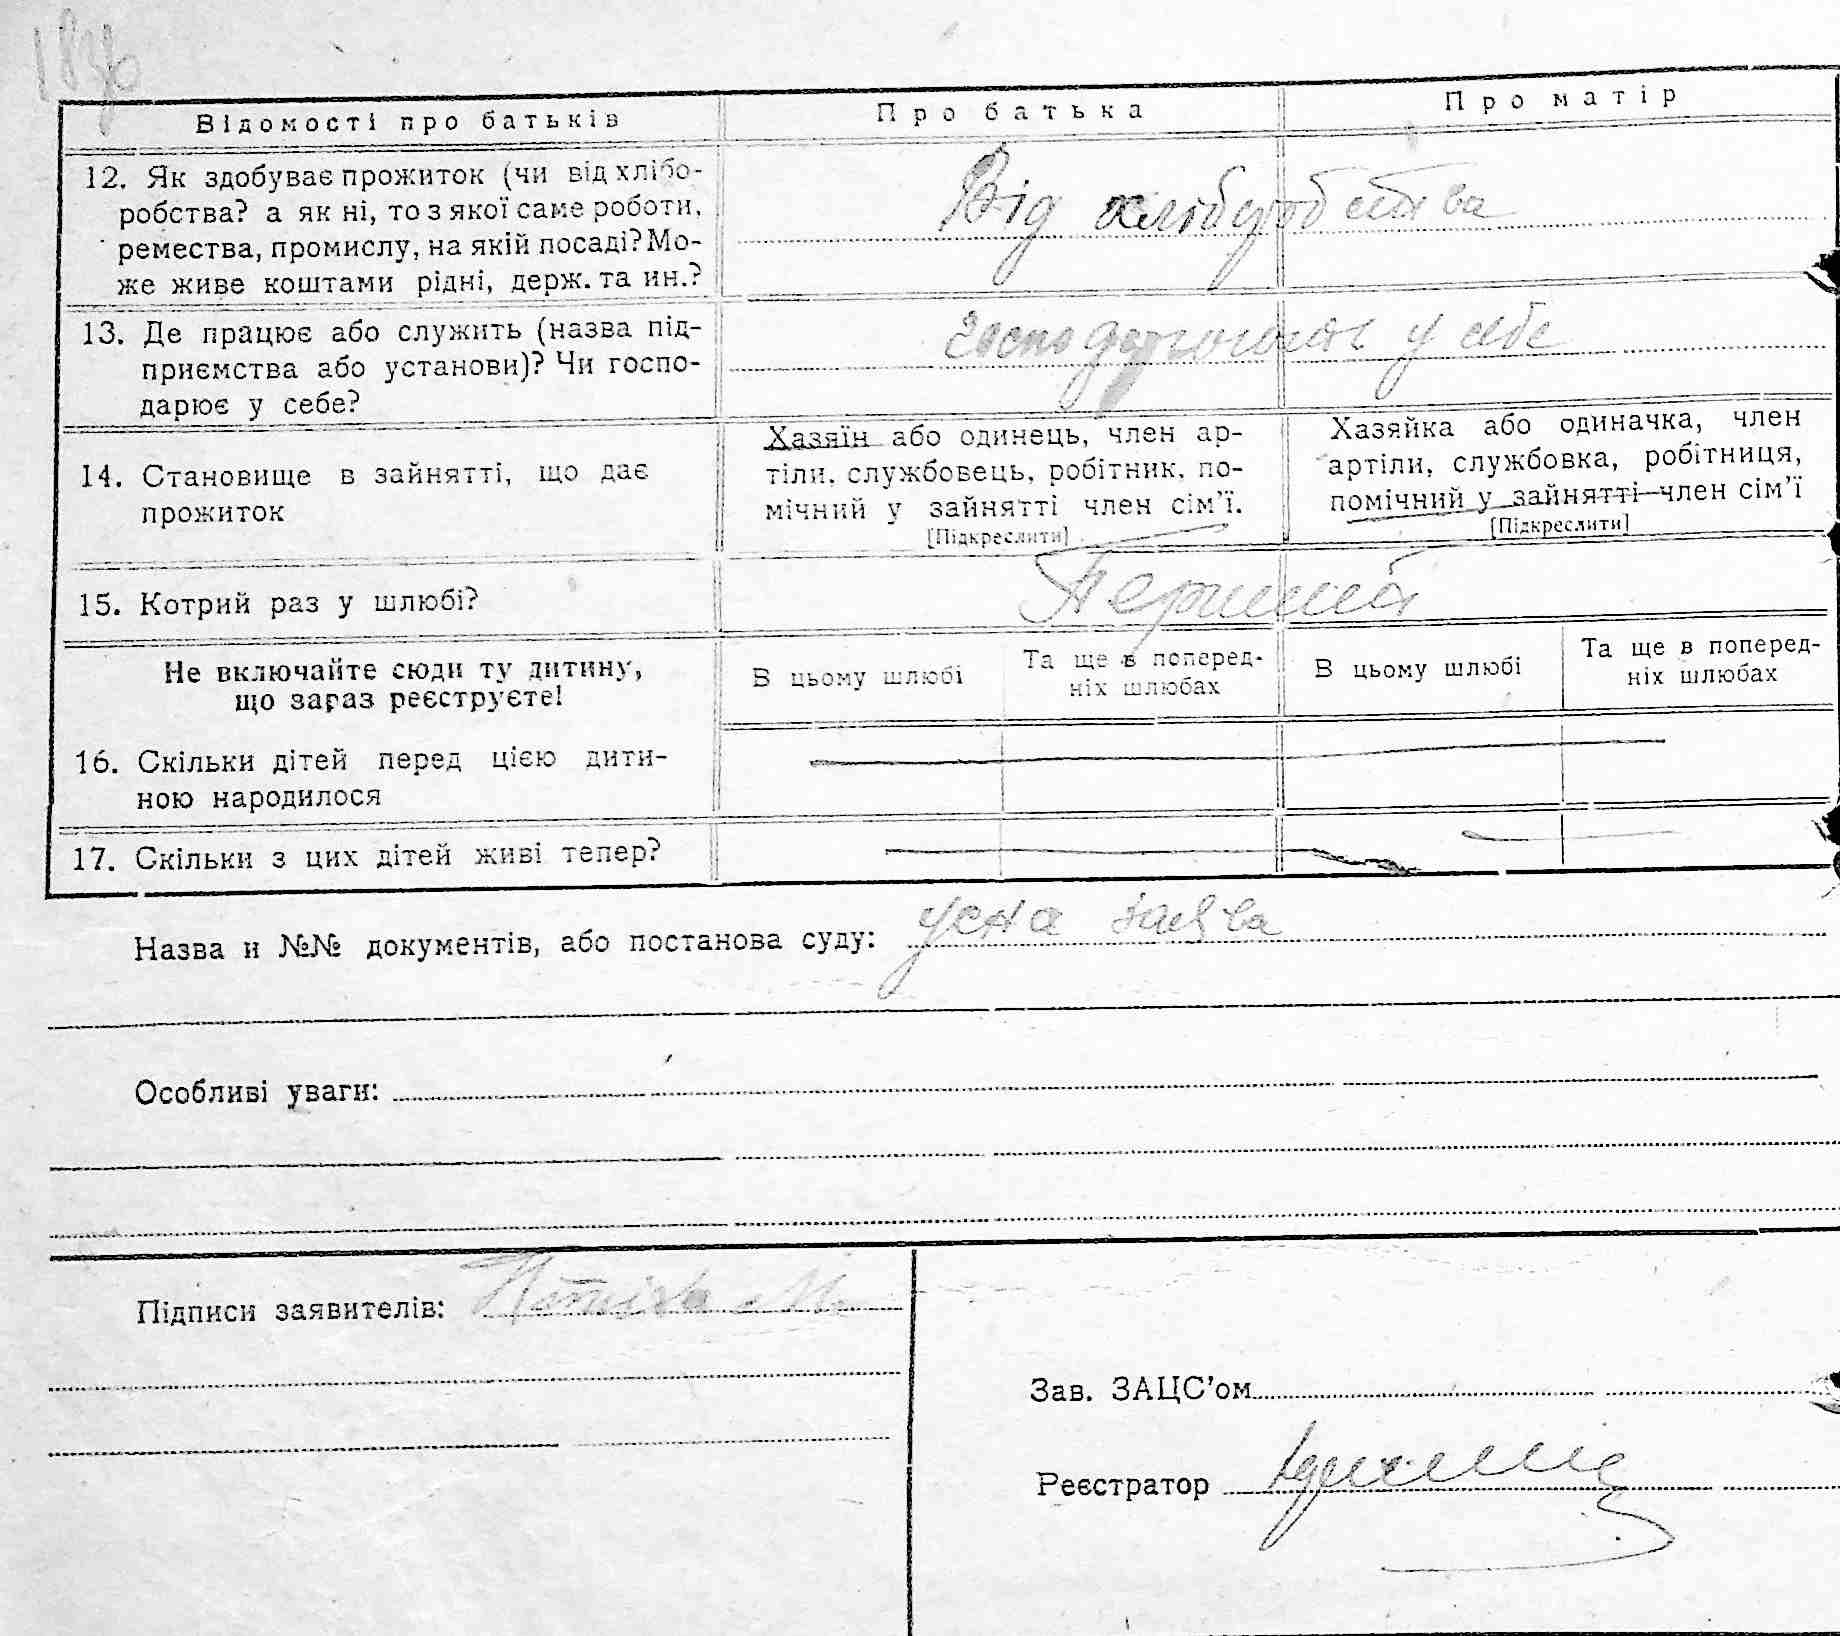 Відомості про батьків Про батька Про матір
12. Як здобуває прожиток (чи від хлібо-
робства? а як ні, то з якої саме роботи,
ремества, промислу, на якій посаді? Мо-
же живе коштами рідні, держ. та ин.?
Від хліборобства
13. Де працює або служить (назва під-
приємства або установи)? Чи госпо-
дарює у себе?
у себе
14. Становище в зайнятті, що дає
прожиток
Хазяїн або одинець, член ар-
тіли, службовець, робітник, по-
мічний у зайнятті член сім'ї.
[Підкреслити]
Хазяйка або одиначка, член
артіли, службовка, робітниця,
помічний у зайнятті член сім'ї
[Підкреслити]
15. Котрий раз у шлюбі?
Перший
Не включайте сюди ту дитину,
що зараз реєструєте!
В цьому шлюбі
Та ще в поперед-
ніх шлюбах
В цьому шлюбі
Та ще в поперед-
ніх шлюбах
16. Скільки дітей перед цією дити-
ною народилося
17. Скільки з цих дітей живі тепер?
Назва и №№ документів, або постанова суду: усна заява
Особливі уваги:
Підписи заявителів:
Зав. ЗАЦС'ом
Реєстратор